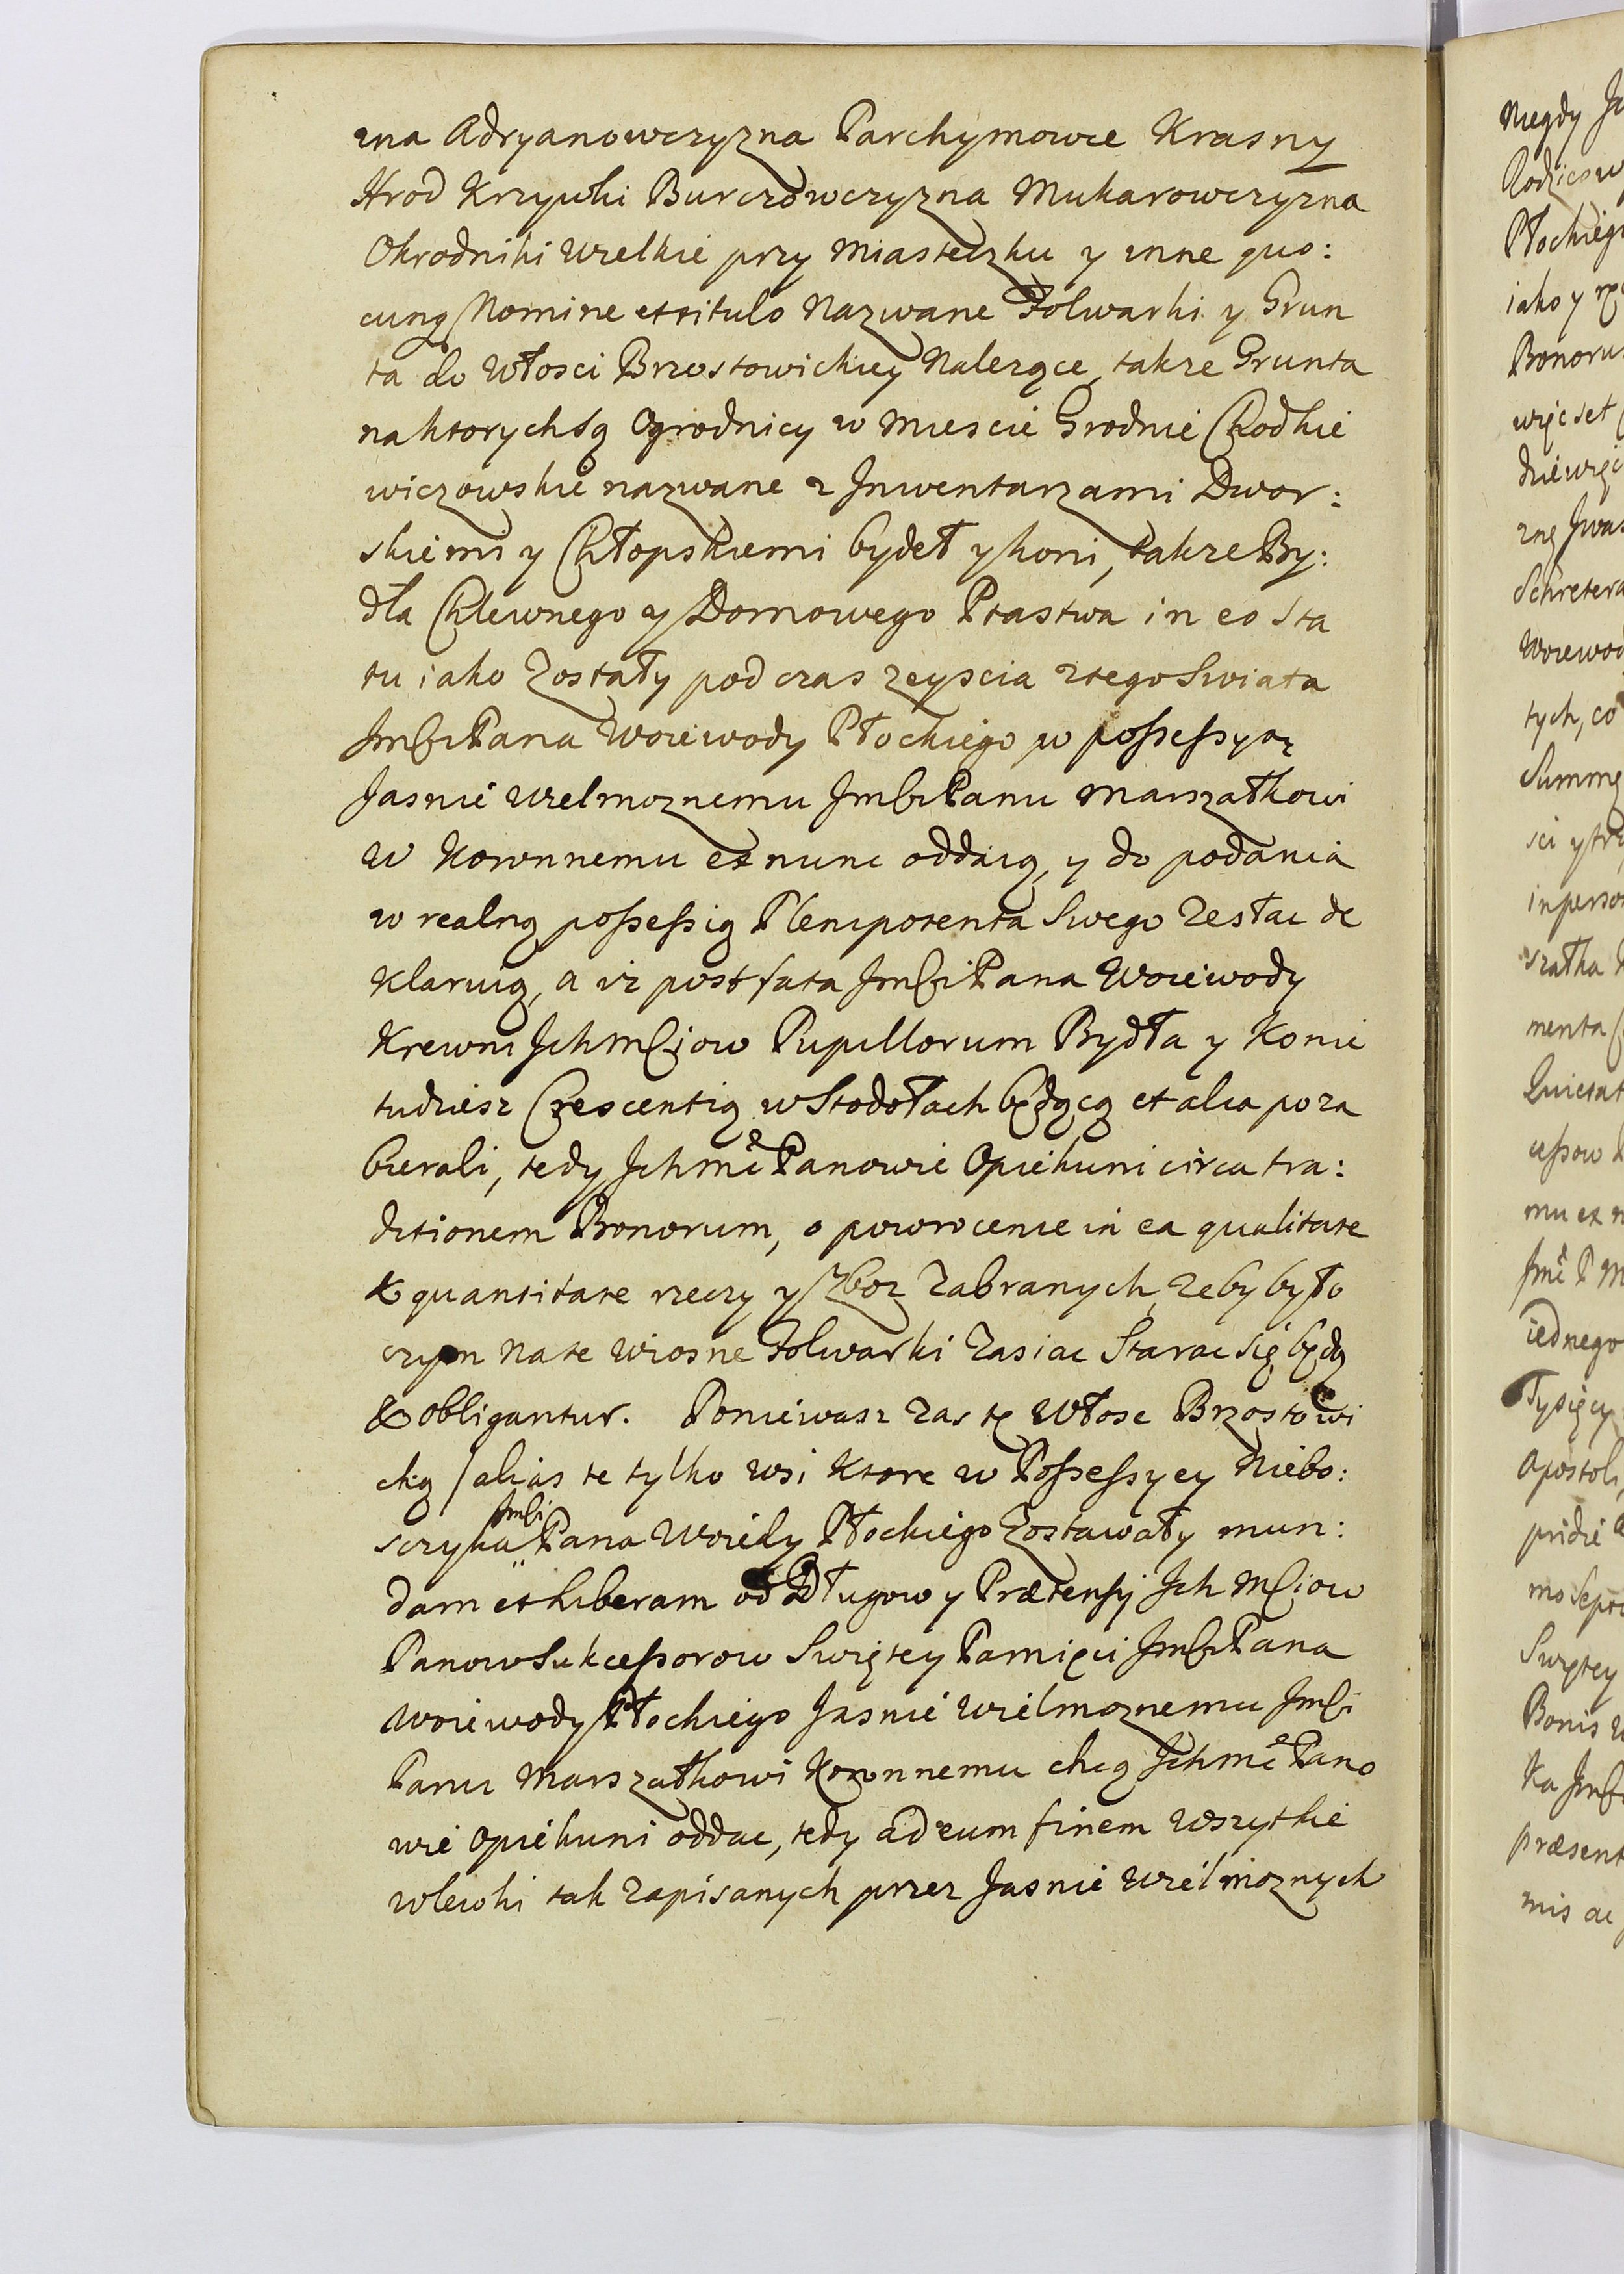 zna Adryanowczyzna Parchymowce Krasny
Hrod Krzywki Burczowczyzna Mukarowczyzna
Okrodniki Wielkie przy Miasteczku y inne quo:
cunq Nomine et titulo Nazwane Folwarki y Grun
ta do Włosci Brzostowickiey Nalezące, takze Grunta
na ktorych są Ogrodnicy w Miescie Grodnie Chodkie
wiczowskie nazwane z Inwentarzami Dwor:
skiemi y Chłopskiemi bydeł y koni, takze By:
dła Chlewnego y Domowego Ptastwa in eo sta
tu iako Zostały pod czas zeyscia z tego Swiata
Jmści Pana Woiewody Płockiego w possessyą
Jasnie Wielmoznemu Jmści Panu Marszałkowi
W Koronnemu ex nunc oddaią, y do podania
w realną possessią Plenipotenta Swego Zesłac de
klaruią, a iz post fata Jmści Pana Woiewody
Krewni Ichmściow Pupillorum Bydła y Konie
tudziesz Crescentią w Stodołach będącą et alia poza
bierali, tedy Ichmc Panowie Opiekuni circa tra:
ditionem Bonorum, o powrocenie in ea qualitate
& quantitate rzeczy y Zboz Zabranych, zeby było
czym na te wiosne Folwarki Zasiac Starac się będą
& obligantur. Poniewasz Zas tę Włosc Brzostowi
cką / alias te tylko wsi ktore w Possessyey Niebo:
szczyka Jmści Pana Woiedy Płockiego Zostawały mun:
dam et liberam od Długow y Prætensij Ich Mściow
Panow Sukcessorow Swiętey Pamięci Jmści Pana
Woiewody Płockiego Jasnie Wielmoznemu Jmści
Panu Marszałkowi Koronnemu chcą Ichmc Pano
wie Opiekuni oddac, tedy ad eum finem wszytkie
wlewki tak Zapisanych przez Jasnie Wielmoznych
Niegdy
Płockiego
iako y
więcset
tych, co
Summę
sci y
szałka
menta
cessow
mu ex
Jmc P M
iednego
Tysięcy
Apostoli
pridie
Swiętey
Bonis
ka
præsent
mis ac